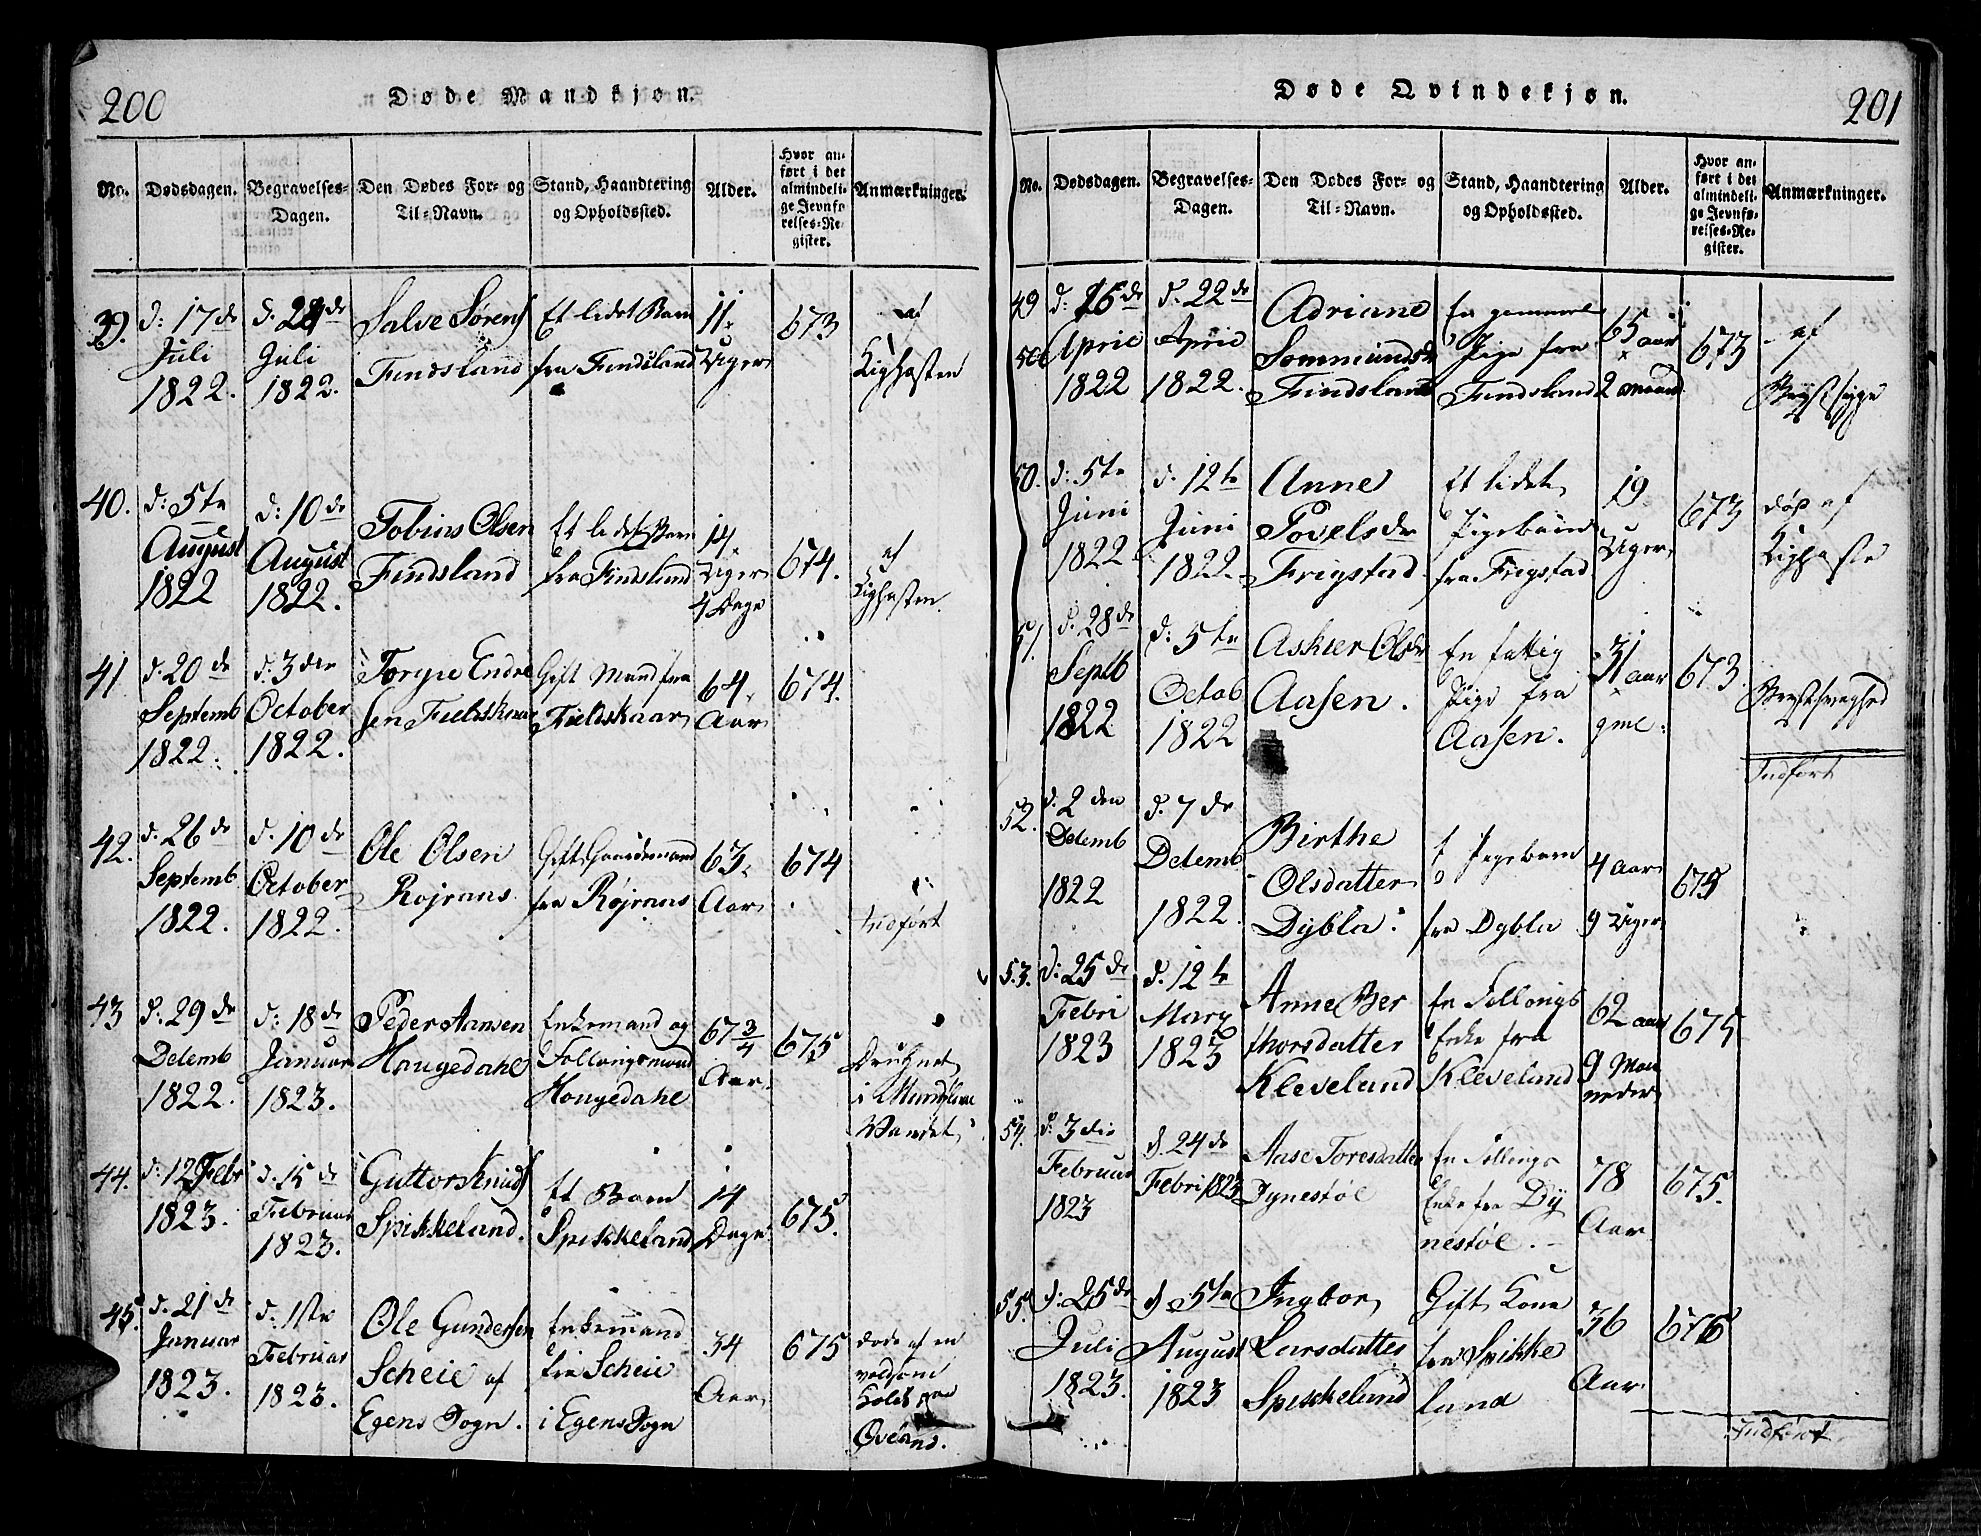 200
Døde Mandkjøn.
No.
Dødsdagen.
Begravelses-
Dagen.
Den Dødes For- og
Til-Navn.
Stand, Haandtering
og Opholdssted.
Alder.
Hvor an-
ført i det
almindeli-
ge Jevnfø-
relses-Re-
gister.
Anmærkninger.
39.
d: 17 de
Juli
1822.
Juli
1822.
Salve Sørens
Findsland
Et lidet Barn
fra Findsland
11
Uger
673
af
Kighosten
40.
d: 5te
August
1822
d: 10 de
August
1822.
Tobias Olsen
Findsland
Et lidet Barn
fra Findsland
14
Uger
4 Dage
674.
af
Kighosten.
41
d. 20 de
Septemb
1822.
d. 3 die
October
1822.
Torgie Endre
sen Fieldskaar
Gift Mand fra
Fieldskaar
64
Aar
674.
42.
d. 26 de
Septemb
1822.
d. 10 de
October
1822.
Ole Olsen
Røjraas
Gift Gaardmand
fra Røjraas
63
Aar
674
Indført
43
d. 29 de
Decemb
1822.
d: 18 de
Januar
1823.
Peder Aansen
Haugedahl
Enkemand og
Follaugsmand
Hougedahl
67 3/4
Aar
675
Druknet
i
Vandet
44.
d: 12 Febr
1823.
d. 15 de
Februar
1823.
Guttorm Knuds
Spikkeland.
Et Barn
Spikkeland
14
Dage
675.
45.
d. 21 de
Januar
1823.
d. 1ste
Februar
1823.
Ole Gundersen
Scheie af
Egens Sogn.
Enkemand
fra Scheie
i Egens Sogn
34
Aar
675
døde af en
voldsom
Kolde paa
Øveand.
201
Døde Qvindekjøn.
No.
Dødsdagen.
Begravelses-
Dagen.
Den Dødes For- og
Til-Navn.
Stand, Haandtering
og Opholdssted.
Alder.
Hvor an-
ført i det
almindeli-
ge Jevnfø-
relses-Re-
gister.
Anmærkninger.
49
d: 16 de
April
1822
d. 22 de
April
1822.
Adriane
Sommundsdr
Findsland
En gammel
Pige fra
Findsland
65 aar
2 maand
673
af
Brystsyge
50.
d: 5te
Juni
1822
d. 12te
Juni
1822.
Anne
Povelsdr
Frigstad
Et lidet
Pigebarn
fra Frigstad
19
Uger
673
døde af
Kighoste
51.
d. 28 de
Septb
1822
d: 5te
Octob
1822
Askier Olsdr
Aasen.
En fattig
Pige fra
Aasen.
31 aar
gml.
673.
Brystsvaghed
Indført
52.
d. 2 den
Decemb
1822
d. 7 de
Decemb
1822.
Birthe
Olsdatter
Dybla.
Pigebarn
fra Dybla
4 Aar
9 Uger
675
53.
d: 25 de
Febri
1823
d. 12te
Marz
1823
Anne Ber
thorsdatter
Kleveland
En Follougs
Enke fra
Kleveland
62 aar
9 Maa
neder
675
54.
d. 3 die
Februar
1823
d. 24 de
Febri 1823
Aase Toresdatter
Dynestøl
En Follougs
Enke fra Dy
nestøl.
78
Aar
675.
55.
d. 25 de
Juli
1823.
d 5te
August
1823
Ingbor
Larsdatter
Spikkeland
Gift Kone
fra Spikke
land
36
Aar
676
Indført